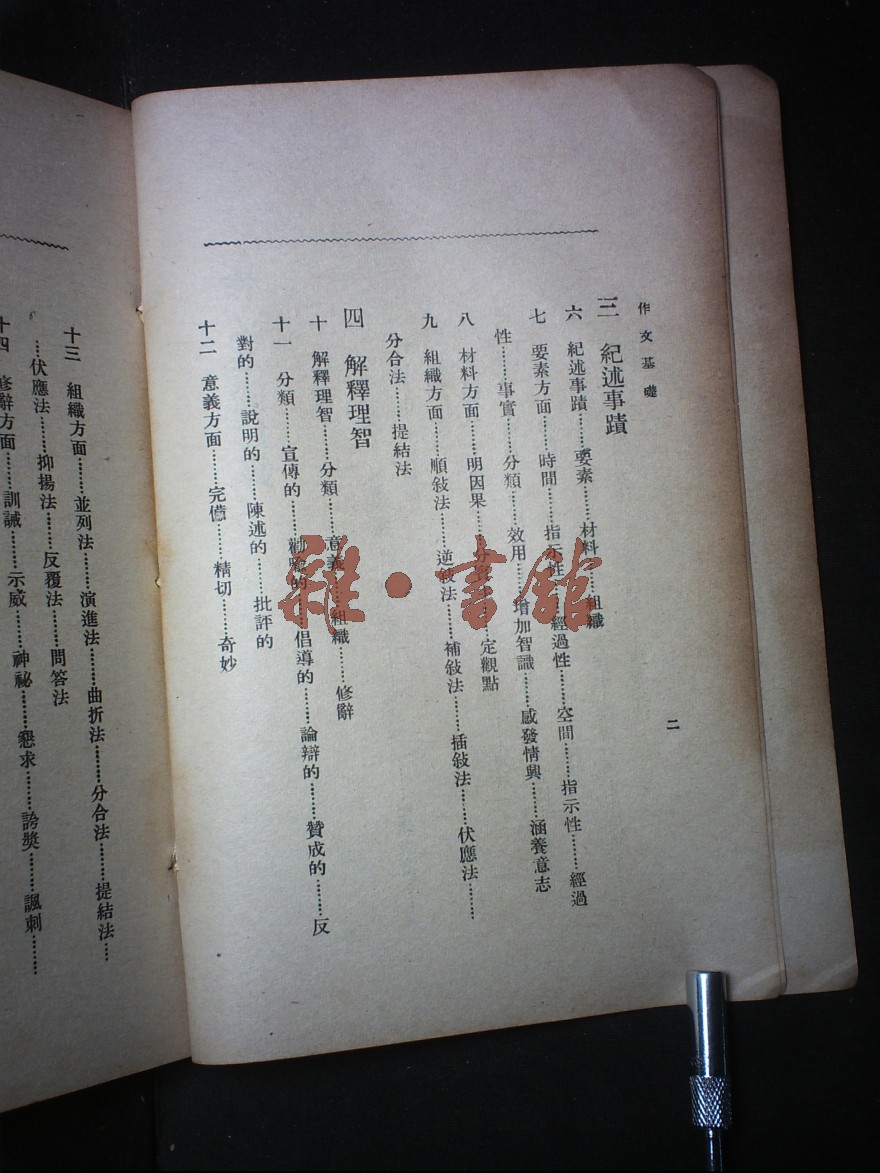 作文基礎
二
三 紀述事蹟
六 紀述事蹟……要素……材料……組織
七 要素方面……時間……指示性……經過性……空間……指示性……經過
性……事實……分類……效用……增加智識……感發情興……涵養意志
八 材料方面……明因果……定觀點
九 組織方面……順敍法……逆敍法……補敍法……插敍法……伏應法……
分合法……提結法
四 解釋理智
十 解釋理智……分類……意義……組織……修辭
十一 分類……宣傳的……的……倡導的……論辯的……贊成的……反
對的……說明的……陳述的……批評的
十二 意義方面……完備……精切……奇妙
十三 組織方面……並列法……演進法……曲折法……分合法……提結法……
……伏應法……抑揚法……反覆法……問答法
十四 修辭方面……訓誡……示威……神祕……懇求……誇獎……諷刺……
雜·書館